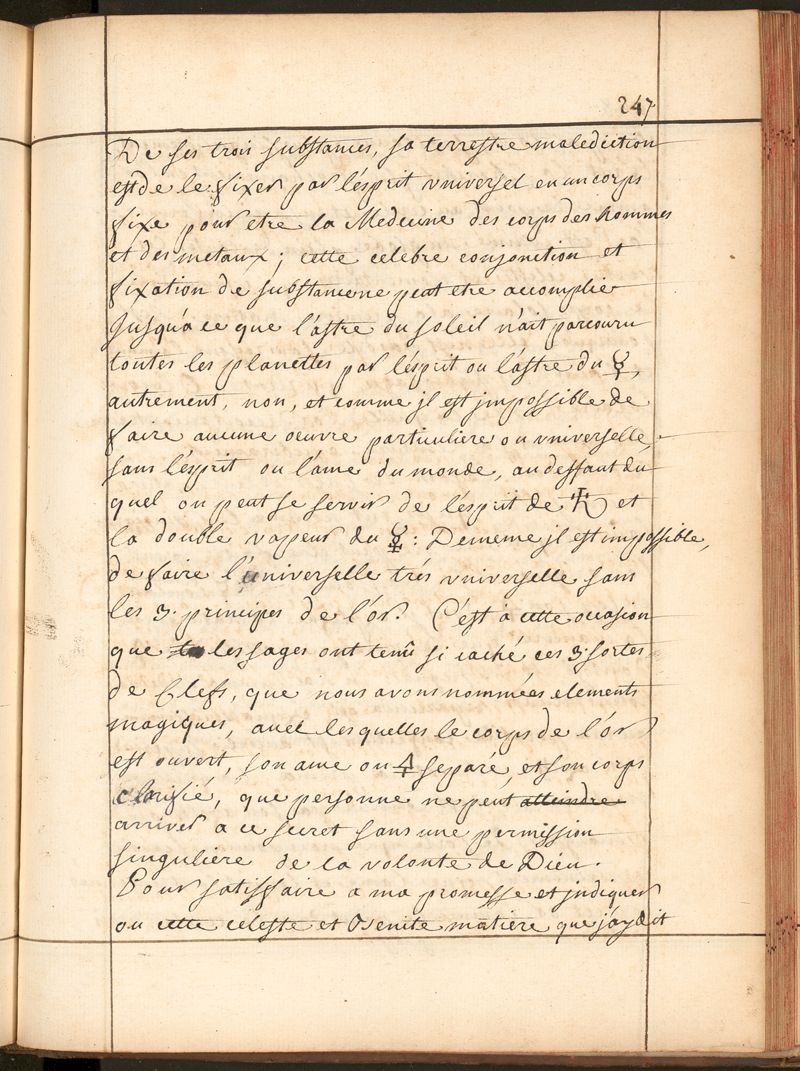 247
De ses trois substances, sa terrestre malediction
est de le fixer par l'esprit vniversel en un corps
fixe pour etre la Medecine des corps des hommes
et des metaux ; cette celebre conjonction et
fixation de substance ne peut etre accomplie
Jusqu'a ce que l'astre du soleil n'ait parcouru
toutes les planettes par l'esprit ou l'astre du ☿,
autrement, non, et comme jl est jmpossible de
faire aucune oeuvre particuliere ou vniverselle,
sans l'esprit ou l'ame du monde, au deffaut du
quel on peut se servir de l'esprit de et
la double vapeur du ☿ : De meme jl est impossible,
de faire l'universelle trés vniverselle sans
les 3. principes de l'or. C'est à cette occasion
que les sages ont tenû si caché ces 3. sortes
de Clefs, que nous avons nommées elements
magiques, avec lesquelles le corps de l'or
est ouvert, son ame ou 🜍 separé, et son corps
clarifié, que personne ne peut atteindre
arriver a ce secret sans une permission
singuliére de la volonte de Dieu.
Pour satisfaire a ma promesse et jndiquer
ou cette celeste et matiere que j'ay dit